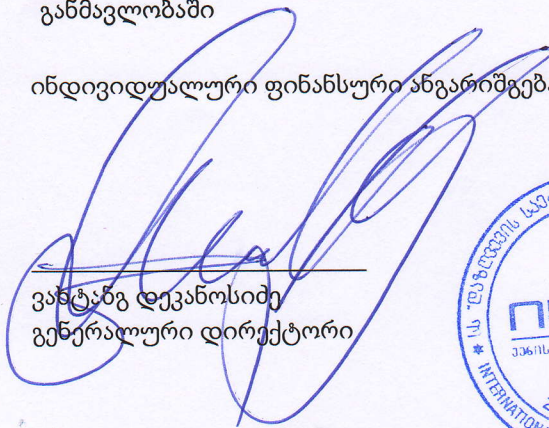 განმავლობაში
ინდივიდუალური ფინანსური ანგარიშგება
ვახტანგ დეკანოსიძე
გენერალური დირექტორი
INTERNATION